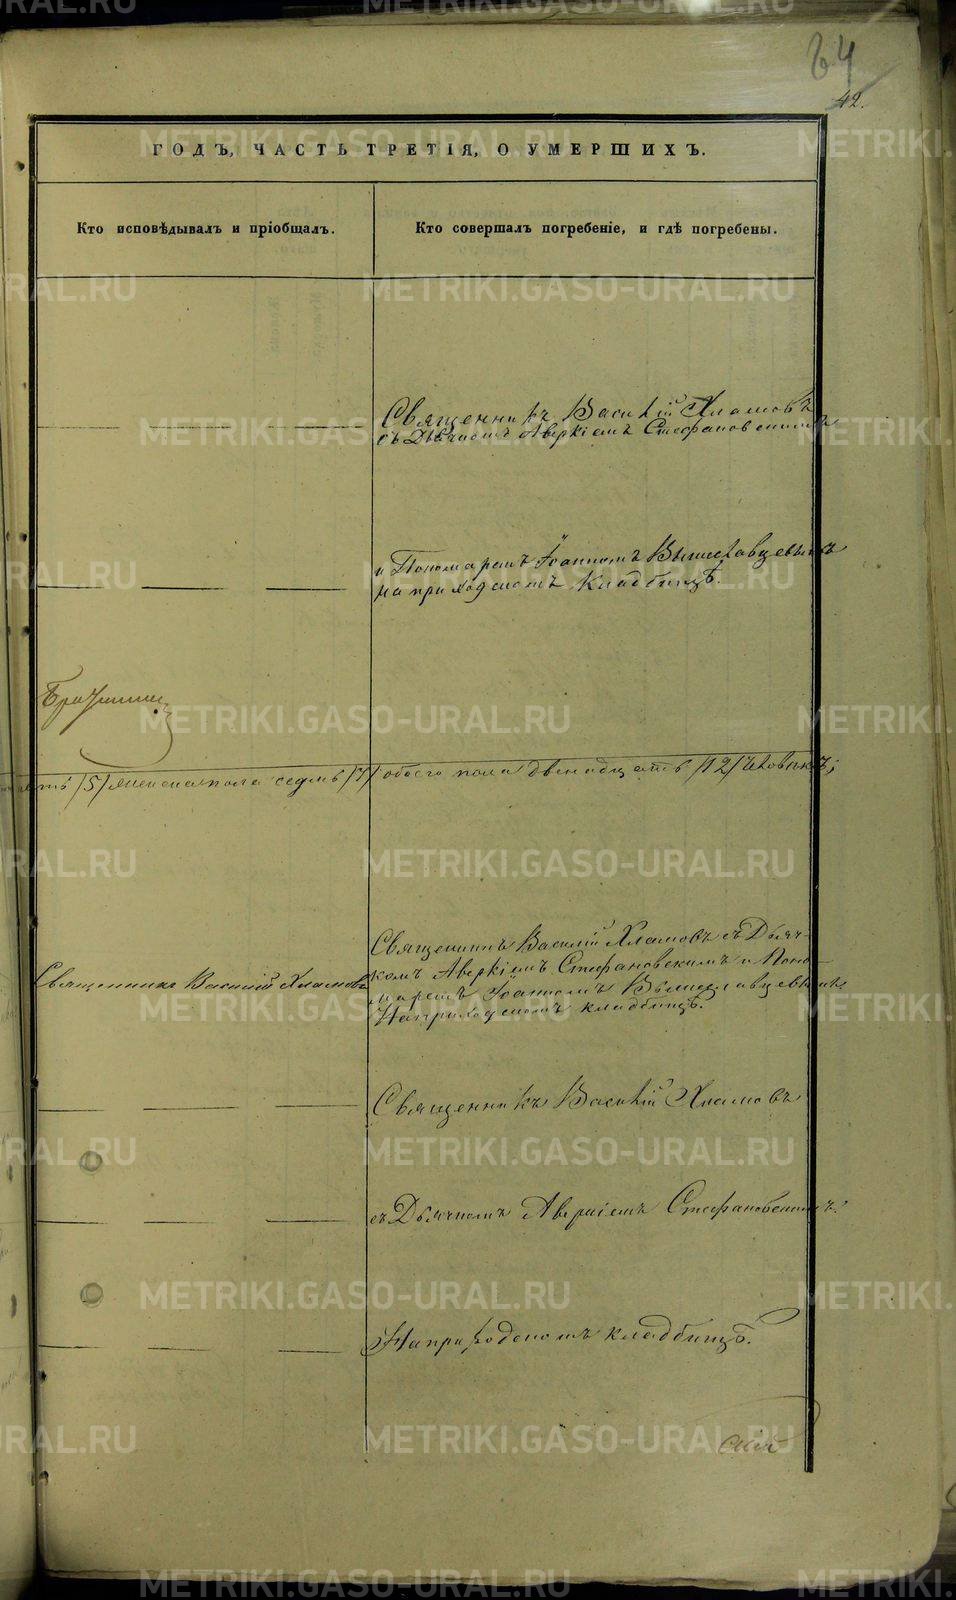 64
42.
ГОДЪ, ЧАСТЬ ТРЕТІЯ, О УМЕРШИХЪ.
Кто исповѣдывалъ и пріобщалъ.
Кто совершалъ погребеніе, и гдѣ погребены.
Священникъ Василій Хламовъ
съ Дьячкомъ Аверкіемъ Стефановскимъ
и Пономаремъ Іоанномъ Вышеславцевымъ
на приходскомъ кладбищѣ.
/5/ женска пола седмь /7/ обоего пола двенадцать /12/ человѣкъ;
Священникъ Василій Хламовъ
Священникъ Василій Хламовъ съ Дьяч-
комъ Аверкіемъ Стефановскимъ и Поно-
маремъ Іоанномъ Вышеславцевымъ
На приходскомъ кладбищѣ.
Священникъ Василій Хламовъ
съ Дьячкомъ Аверкіемъ Стефановскимъ.
На приходскомъ кладбищѣ.
METRIKI.GASO-URAL.RU